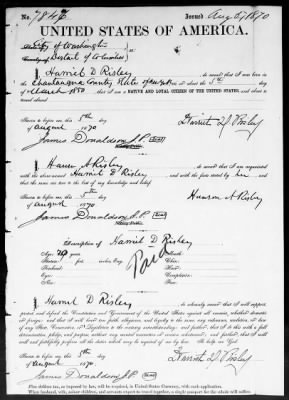 No. 7846 Issued Aug 5/1870
City of Washington
District of Columbia
UNITED STATES OF AMERICA.
I Harriet D Risley do swear that I was born in
Chautauqua County State of New York on the 1st day
of March 1850 ; that I am a NATIVE AND LOYAL CITIZEN OF THE UNITED STATES, and about to
travel abroad
Sworn to before me this 5th day
of August 1870
Harriet D Risley
James Donaldson J.P.
I Hanson A Risley do swear that I am acquainted
with the above named Harriet D Risley and with the facts stated by her and
that the same are true to the best of my knowledge and belief.
Sworn to before me this 5th day
of August 1870
Hanson A Risley
James Donaldson J.P.
Description of Harriet D Risley
Age: 20 years
Stature: feet inches, Eng.
Forehead:
Eyes:
Nose:
Mouth:
Chin:
Hair:
Complexion:
Face:
Paid
I Harriet D Risley do solemnly swear that I will support,
protect and defend the Constitution and Government of the United States against all enemies, whether domestic
or foreign; and that I will bear true faith, allegiance, and loyalty to the same, any ordinance, resolution, or law
of any State, Convention, or Legislature to the contrary notwithstanding; and further, that I do this with a full
determination, pledge, and purpose, without any mental reservation or evasion whatsoever; and further, that I will
well and faithfully perform all the duties which may be required of me by law. So help me God.
Sworn to before me this 5th day
of August 1870.
Harriet D Risley
James Donaldson J.P.